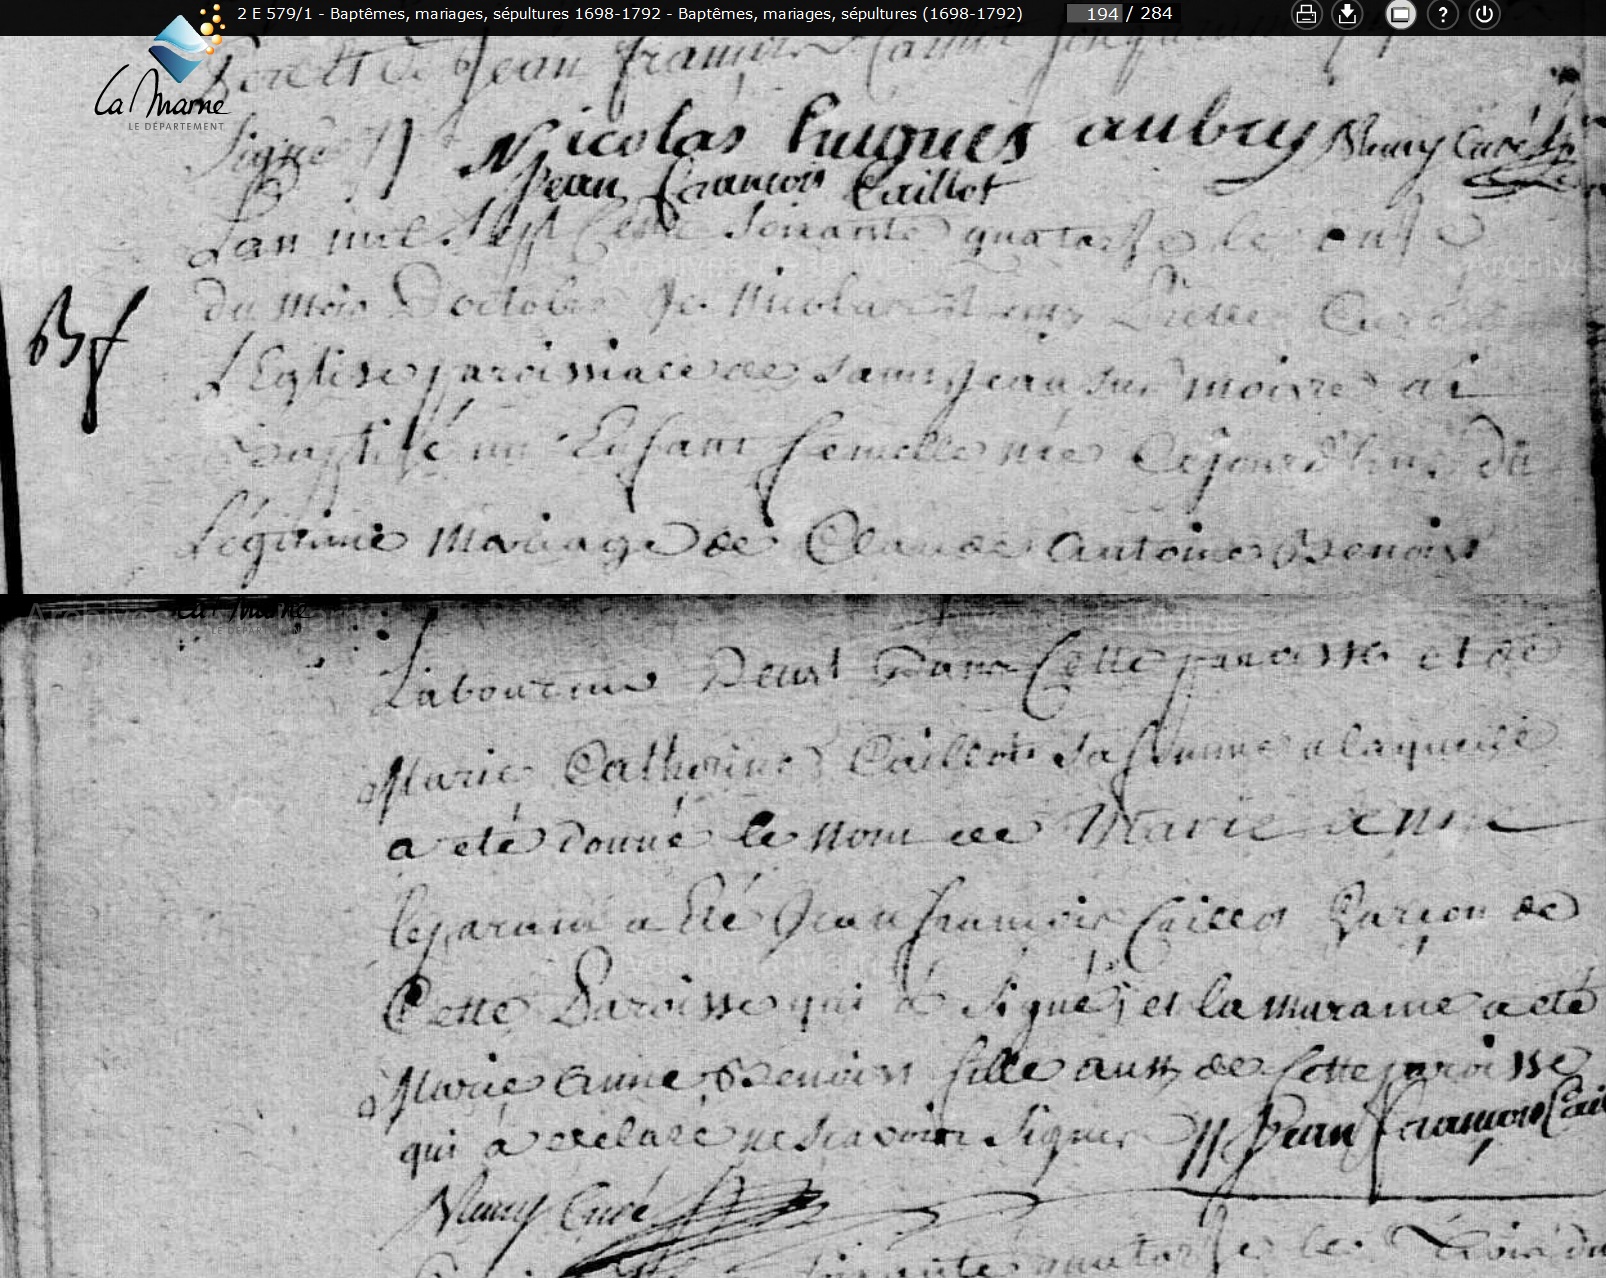 2 E 579/1 - Baptêmes, mariages, sépultures 1698-1792 - Baptêmes, mariages, sépultures (1698-1792) 194 / 284
La Marne
LE DÉPARTEMENT
Jean françois
Signé Nicolas huigues aubry Curé
Jean François Caillot
Lan mil Sept Cent Soixante quatorze le onze
du mois Doctobre Je Nicolas Curé de
L'Eglise paroissiale de Saint Jean sur moivre ai
Bf
Baptisé un Enfant femelle née Cejourd'hui du
Légitime Mariage de Claude Antoine Benoist
Laboureur Demt Dans Cette paroisse et de
Marie Catherine Caillot sa femme a laquelle
a eté donné le nom de Marie Anne
le parain a Eté Jean françois Caillot Garçon de
Cette Paroisse qui a Signé, et la maraine a eté
Marie Anne Benoist fille aussy de Cette paroisse
qui a declaré ne scavoir Signer Jean François Cail
Curé
Soixante quatorze le Trois du